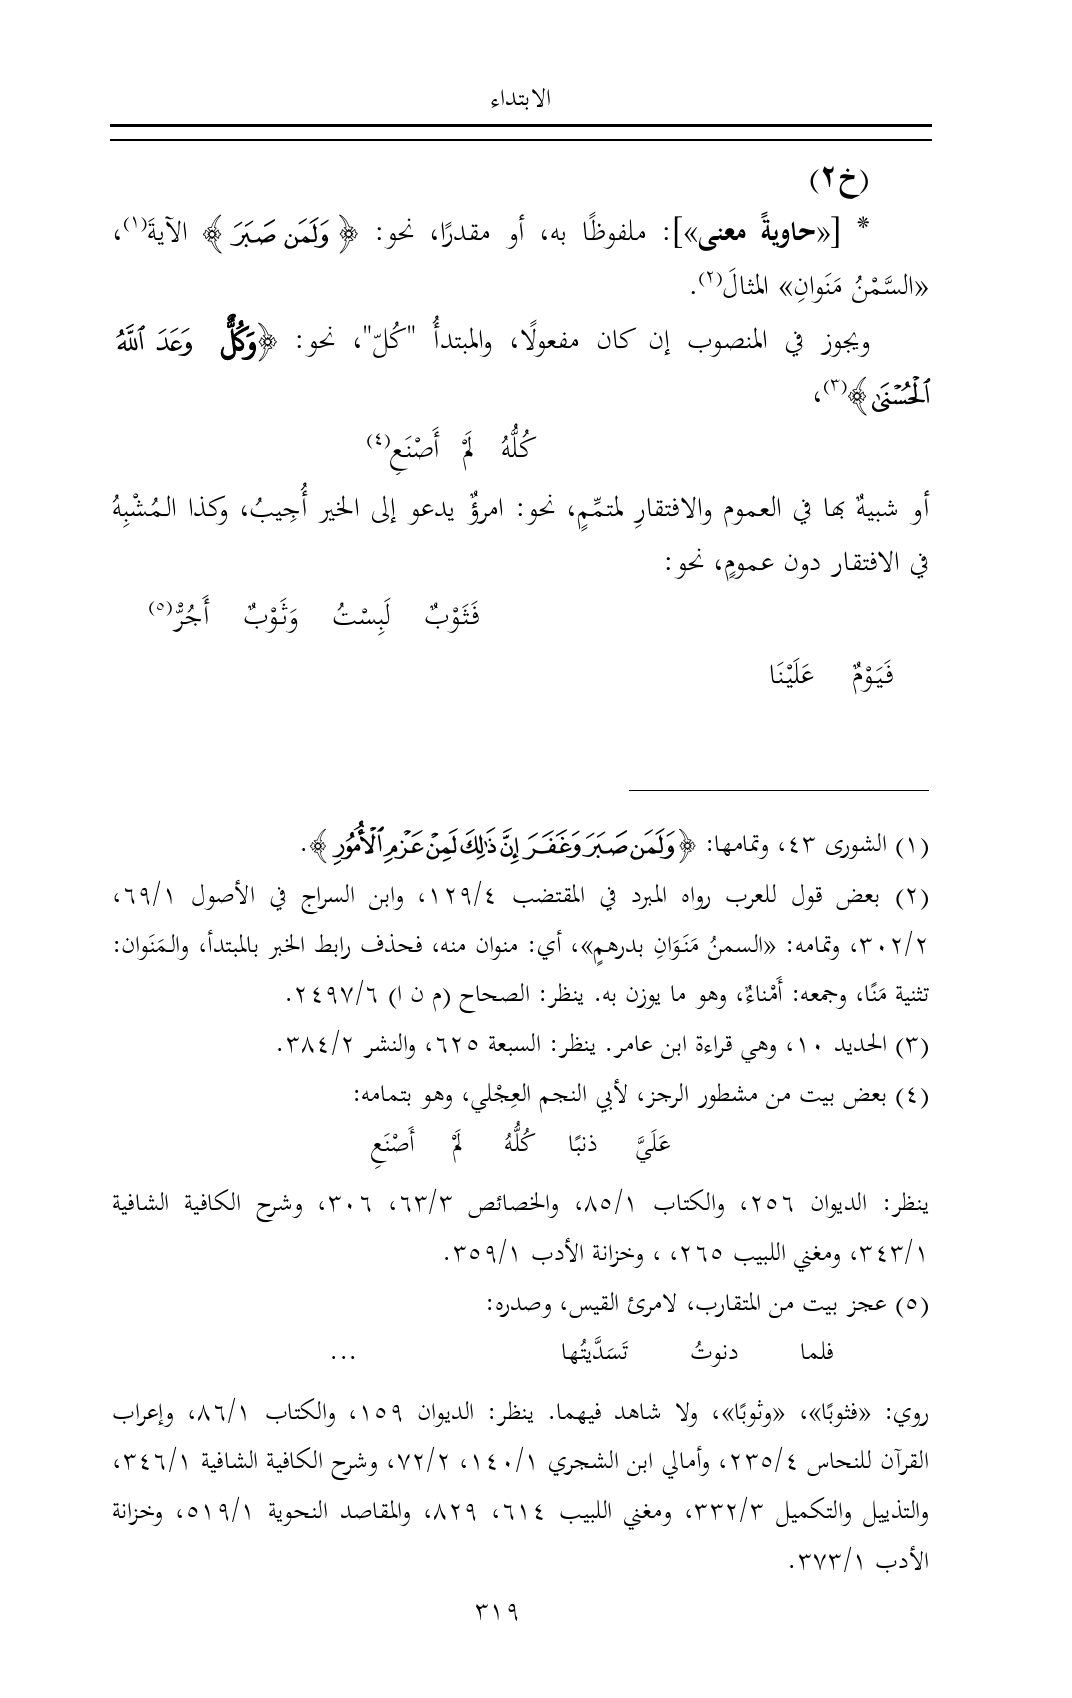 الابتداء
(خ٢)
* [«حاويةً معنى»]: ملفوظًا به، أو مقدرًا، نحو: ﴿وَلَمَن صَبَرَ﴾ الآيةَ(١)،
«السَّمْنُ مَنَوانِ» المثالَ(٢).
ويجوز في المنصوب إن كان مفعولًا، والمبتدأُ "كُلّ"، نحو: ﴿وَكُلٌّ وَعَدَ ٱللَّهُ
ٱلْحُسْنَىٰ﴾(٣)،
كُلُّهُ لَمْ أَصْنَعِ(٤)
أو شبيهٌ بها في العموم والافتقارِ لمتمِّمٍ، نحو: امرؤٌ يدعو إلى الخير أُجِيبُ، وكذا المُشْبِهُ
في الافتقار دون عمومٍ، نحو:
فَثَوْبٌ لَبِسْتُ وَثَوْبٌ أَجُرّْ(٥)
فَيَوْمٌ عَلَيْنَا
(١) الشورى ٤٣، وتمامها: ﴿وَلَمَن صَبَرَ وَغَفَرَ إِنَّ ذَٰلِكَ لَمِنْ عَزْمِ ٱلْأُمُورِ﴾.
(٢) بعض قول للعرب رواه المبرد في المقتضب ١٢٩/٤، وابن السراج في الأصول ٦٩/١،
٣٠٢/٢، وتمامه: «السمنُ مَنَوَانِ بدرهمٍ»، أي: منوان منه، فحذف رابط الخبر بالمبتدأ، والمَنَوان:
تثنية مَنًا، وجمعه: أَمْناءٌ، وهو ما يوزن به. ينظر: الصحاح (م ن ا) ٢٤٩٧/٦.
(٣) الحديد ١٠، وهي قراءة ابن عامر. ينظر: السبعة ٦٢٥، والنشر ٣٨٤/٢.
(٤) بعض بيت من مشطور الرجز، لأبي النجم العِجْلي، وهو بتمامه:
عَلَيَّ ذنبًا كُلُّهُ لَمْ أَصْنَعِ
ينظر: الديوان ٢٥٦، والكتاب ٨٥/١، والخصائص ٦٣/٣، ٣٠٦، وشرح الكافية الشافية
٣٤٣/١، ومغني اللبيب ٢٦٥، ، وخزانة الأدب ٣٥٩/١.
(٥) عجز بيت من المتقارب، لامرئ القيس، وصدره:
فلما دنوتُ تَسَدَّيتُها ...
روي: «فثوبًا»، «وثوبًا»، ولا شاهد فيهما. ينظر: الديوان ١٥٩، والكتاب ٨٦/١، وإعراب
القرآن للنحاس ٢٣٥/٤، وأمالي ابن الشجري ١٤٠/١، ٧٢/٢، وشرح الكافية الشافية ٣٤٦/١،
والتذييل والتكميل ٣٣٢/٣، ومغني اللبيب ٦١٤، ٨٢٩، والمقاصد النحوية ٥١٩/١، وخزانة
الأدب ٣٧٣/١.
٣١٩